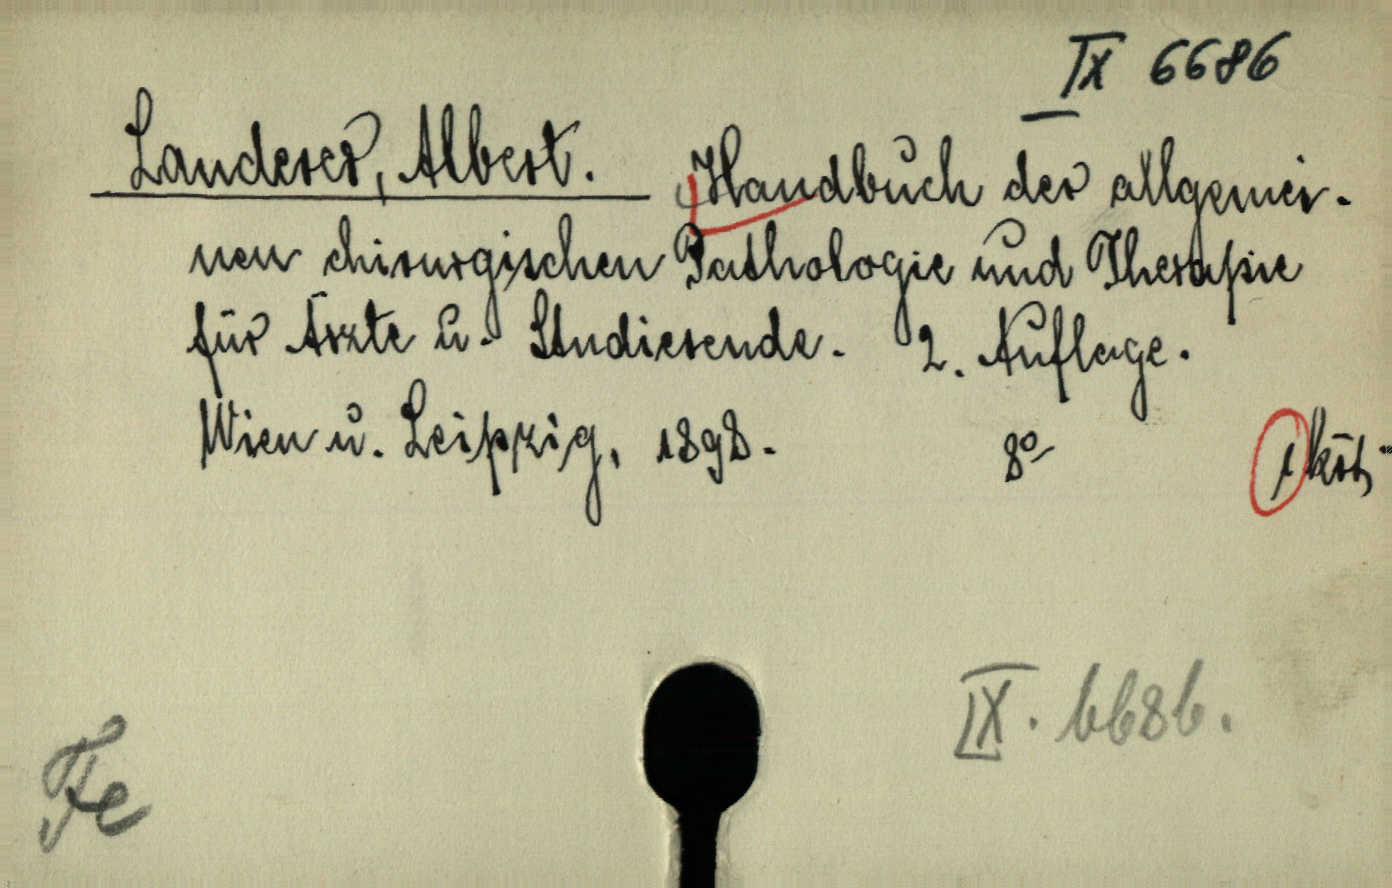 IX 6686
Landerer, Albert. Handbuch der allgemei-
nen chirurgischen Pathologie und Therapie
für Ärzte u. Studierende. 2. Auflage.
Wien u. Leipzig, 1898. 8° 1 köt.
IX. 6686.
Fe